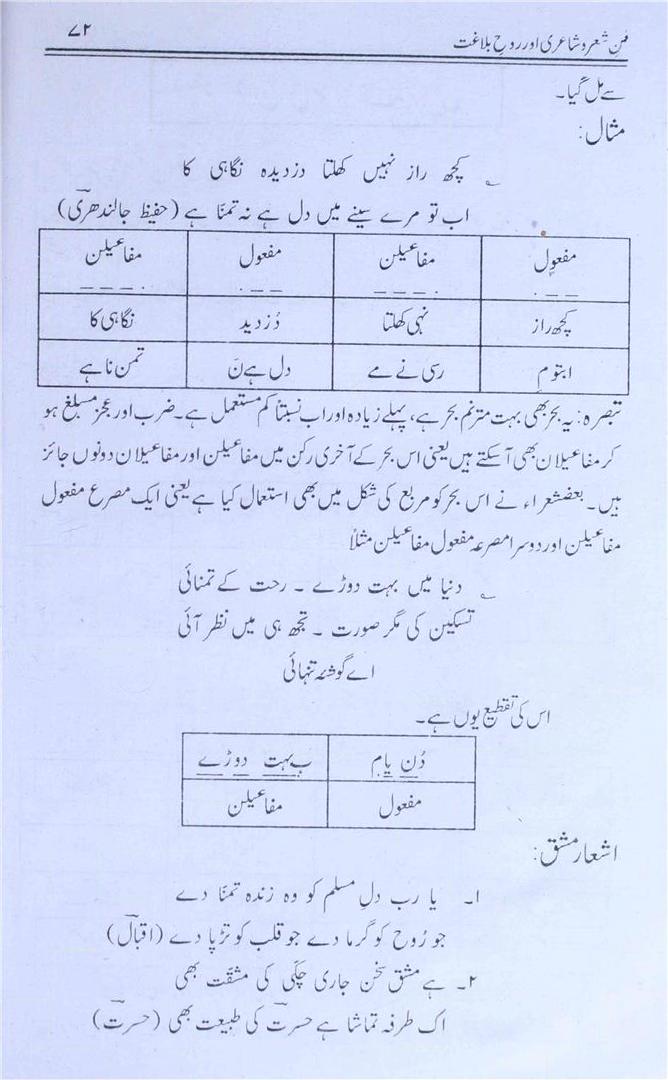 فنِ شعر و شاعری اور روحِ بلاغت ۷۲
سے مل گیا۔
مثال:
کچھ راز نہیں کھلتا دزدیدہ نگاہی کا
اب تو مرے سینے میں دل ہے نہ تمنّا ہے (حفیظ جالندھری)
مفعولُ مفاعیلن مفعول مفاعیلن
کچھ راز نہی کھلتا دُزدید نگاہی کا
ابتومِ رسی نے مے دل ہے نَ تمن نا ہے
تبصرہ: یہ بحر بھی بہت مترنم بحر ہے، پہلے زیادہ اور اب نسبتاً کم مستعمل ہے۔ ضرب اور عجز مسبلغ ہو
کر مفاعیلان بھی آ سکتے ہیں یعنی اس بحر کے آخری رکن میں مفاعیلن اور مفاعیلان دونوں جائز
ہیں۔ بعض شعراء نے اس بحر کو مربع کی شکل میں بھی استعمال کیا ہے یعنی ایک مصرع مفعول
مفاعیلن اور دوسرا مصرعہ مفعول مفاعیلن مثلاً
دنیا میں بہت دوڑے ۔ رحت کے تمنائی
تسکین کی مگر صورت ۔ تجھ ہی میں نظر آئی
اے گوشۂ تنہائی
اس کی تقطیع یوں ہے۔
دُن یامِ بہت دوڑے
مفعول مفاعیلن
اشعار مشق:
۱۔ یا رب دلِ مسلم کو وہ زندہ تمنّا دے
جو رُوح کو گرما دے جو قلب کو تڑپا دے (اقبال)
۲۔ ہے مشق سخن جاری چکّی کی مشقّت بھی
اک طرفہ تماشا ہے حسرت کی طبیعت بھی (حسرت)